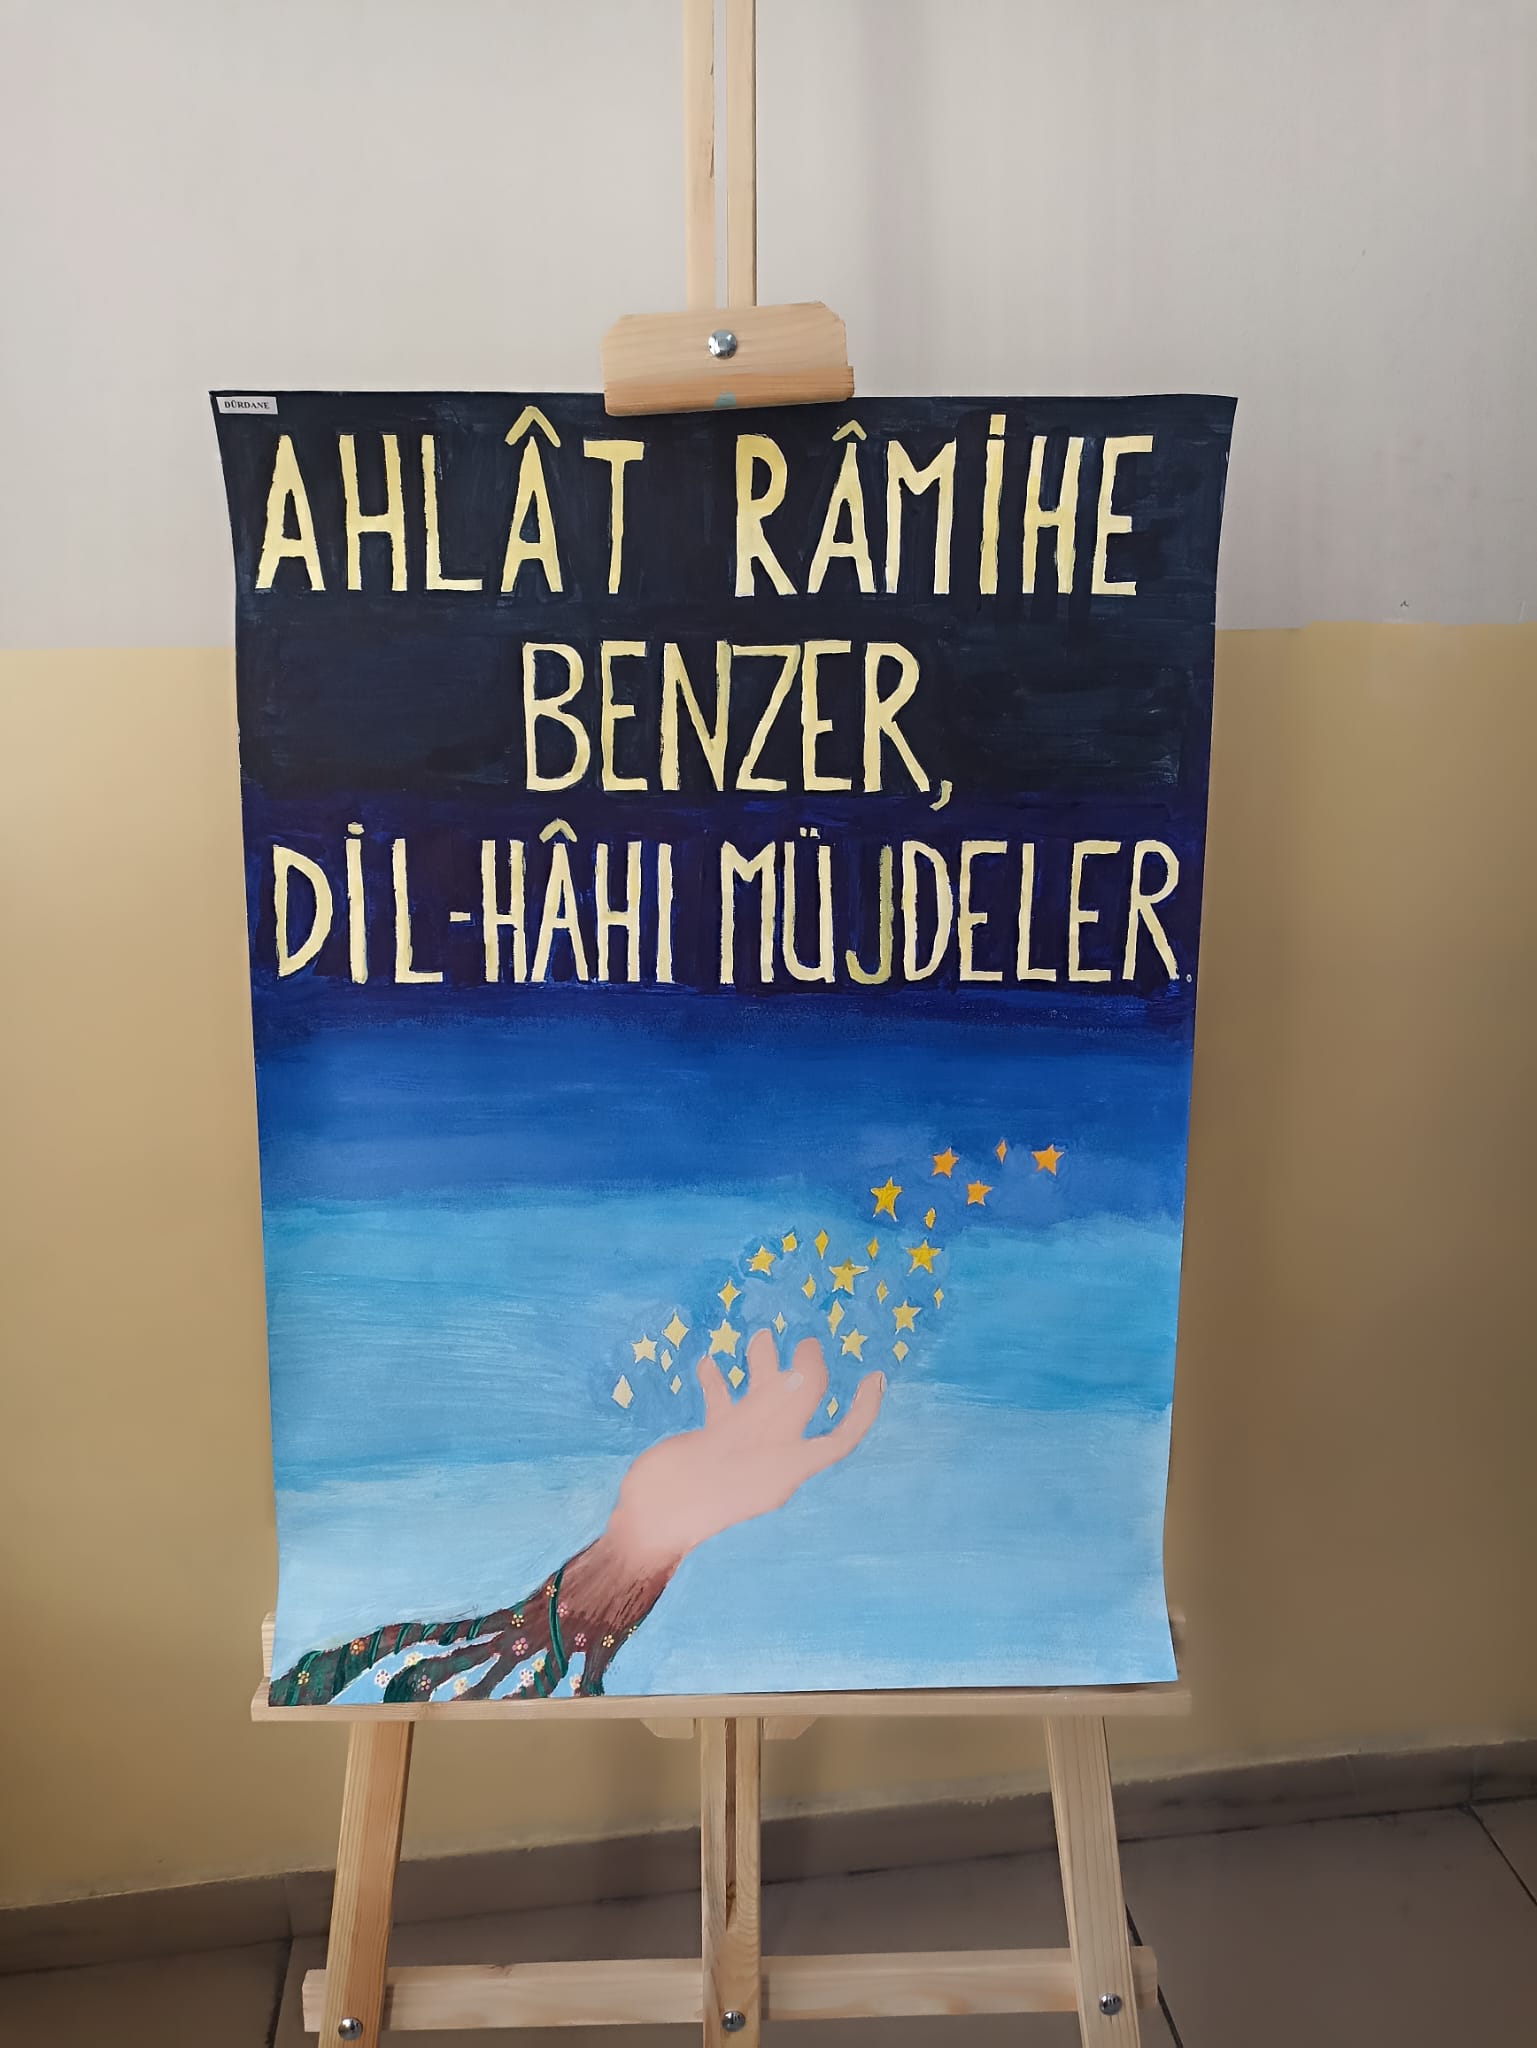 DÜRDANE
AHLÂT RÂMİHE
BENZER,
DİL-HÂHI MÜJDELER.